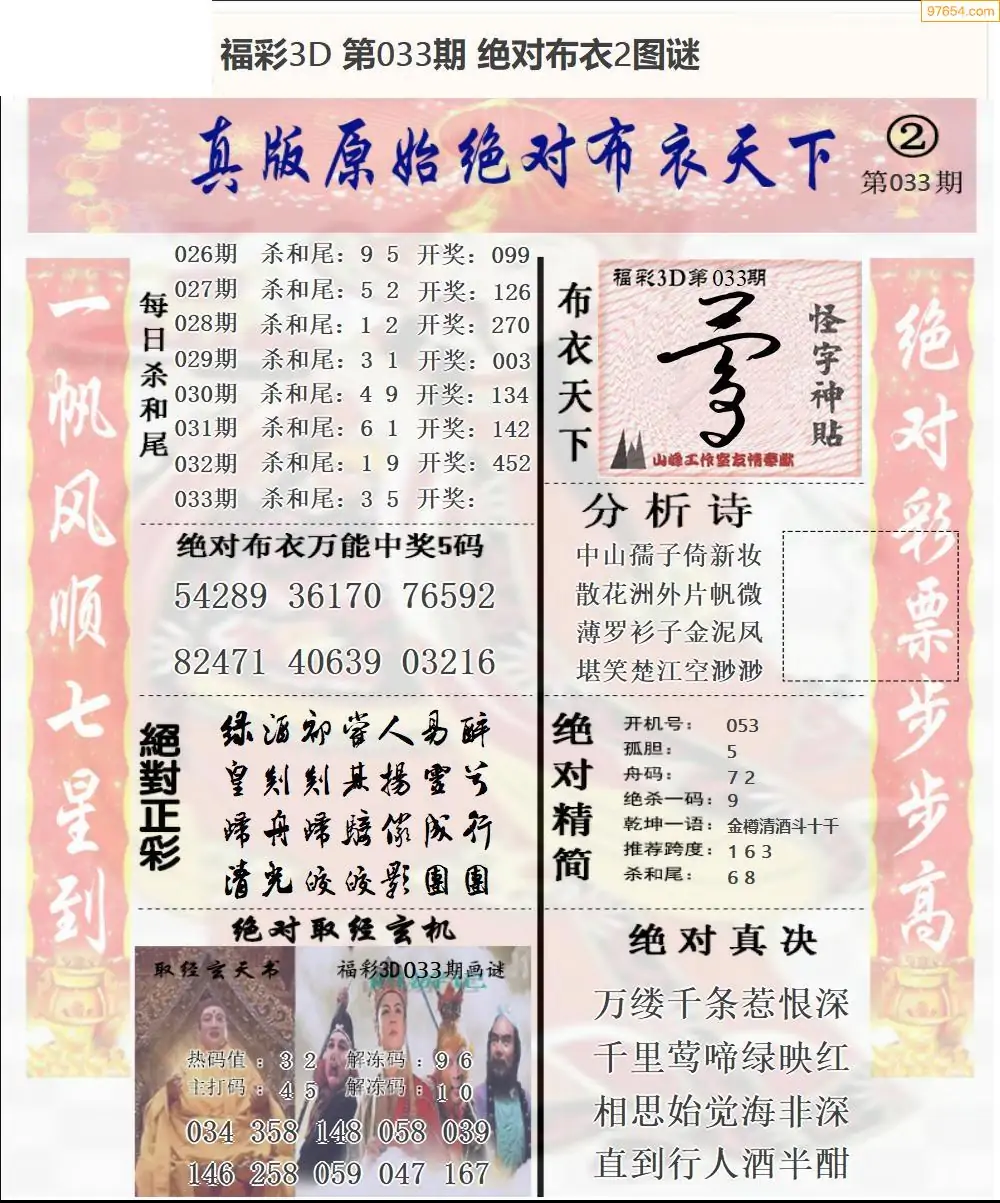 97654.com
福彩3D 第033期 绝对布衣2图谜
真版原始绝对布衣天下
②
第033期
一帆风顺七星到
每日杀和尾
026期 杀和尾：9 5 开奖：099
027期 杀和尾：5 2 开奖：126
028期 杀和尾：1 2 开奖：270
029期 杀和尾：3 1 开奖：003
030期 杀和尾：4 9 开奖：134
031期 杀和尾：6 1 开奖：142
032期 杀和尾：1 9 开奖：452
033期 杀和尾：3 5 开奖：
绝对布衣万能中奖5码
54289 36170 76592
82471 40639 03216
絕對正彩
绿酒初尝人易醉
清光皎皎影團團
绝对取经玄机
取经玄天书
福彩3D033期画谜
热码值：3 2 解冻码：9 6
主打码：4 5 解冻码：1 0
034 358 148 058 039
146 258 059 047 167
布衣天下
福彩3D第033期
怪字神貼
山峰工作室友情奉献
分析诗
中山孺子倚新妆
散花洲外片帆微
薄罗衫子金泥凤
堪笑楚江空渺渺
绝对精简
开机号：053
孤胆：5
舟码：7 2
绝杀一码：9
乾坤一语：金樽清酒斗十千
推荐跨度：1 6 3
杀和尾：6 8
绝对真决
万缕千条惹恨深
千里莺啼绿映红
相思始觉海非深
直到行人酒半酣
绝对彩票步步高